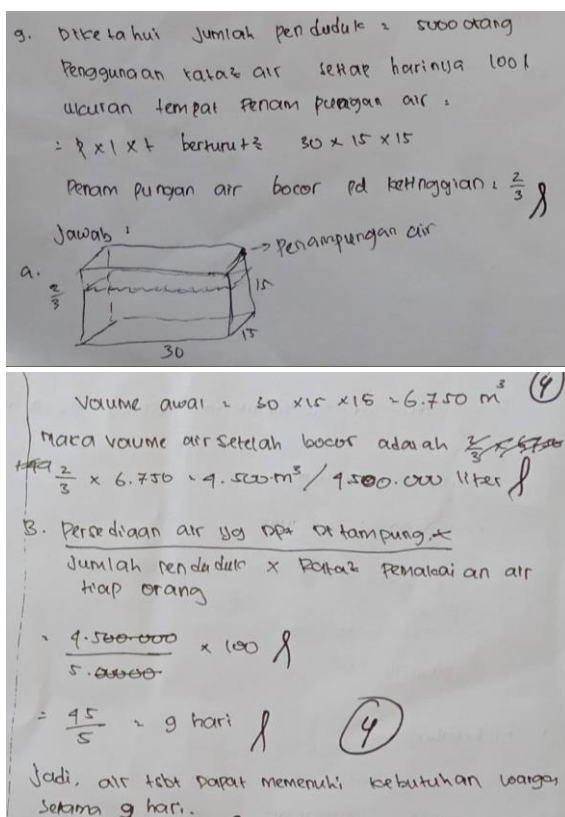 9. Diketahui Jumlah penduduk = 5000 orang
Penggunaan rata2 air setiap harinya 100 l
ukuran tempat Penampungan air :
= p x l x t berturut2 30 x 15 x 15
Penampungan air bocor pd ketinggian : 2/3
Jawab :
→ Penampungan air
a.
2/3
15
15
30
Volume awal = 30 x 15 x 15 = 6.750 m³ (4)
Maka Volume air setelah bocor adalah
2/3 x 6.750 = 4.500 m³ / 4.500.000 liter
B. Persediaan air yg Dpt Di tampung
Jumlah penduduk x Rata2 Pemakaian air
tiap orang
= 4.500.000 / 5.0000 x 100
= 45/5 = 9 hari (4)
Jadi, air tsbt Dapat memenuhi kebutuhan warga,
selama 9 hari.